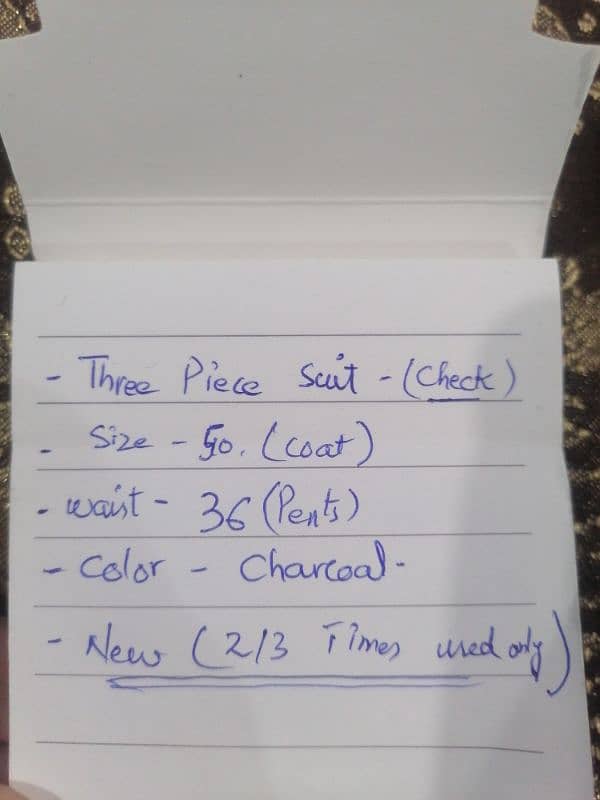 - Three Piece Suit - (Check)
- Size - 50. (Coat)
- Waist - 36 (Pents)
- Color - Charcoal-
- New (2/3 Times used only)